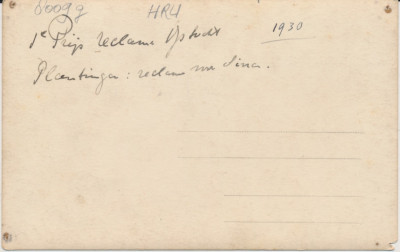 6009g HRH
1e Prijs reclame Optocht 1930
Plantinga: reclame